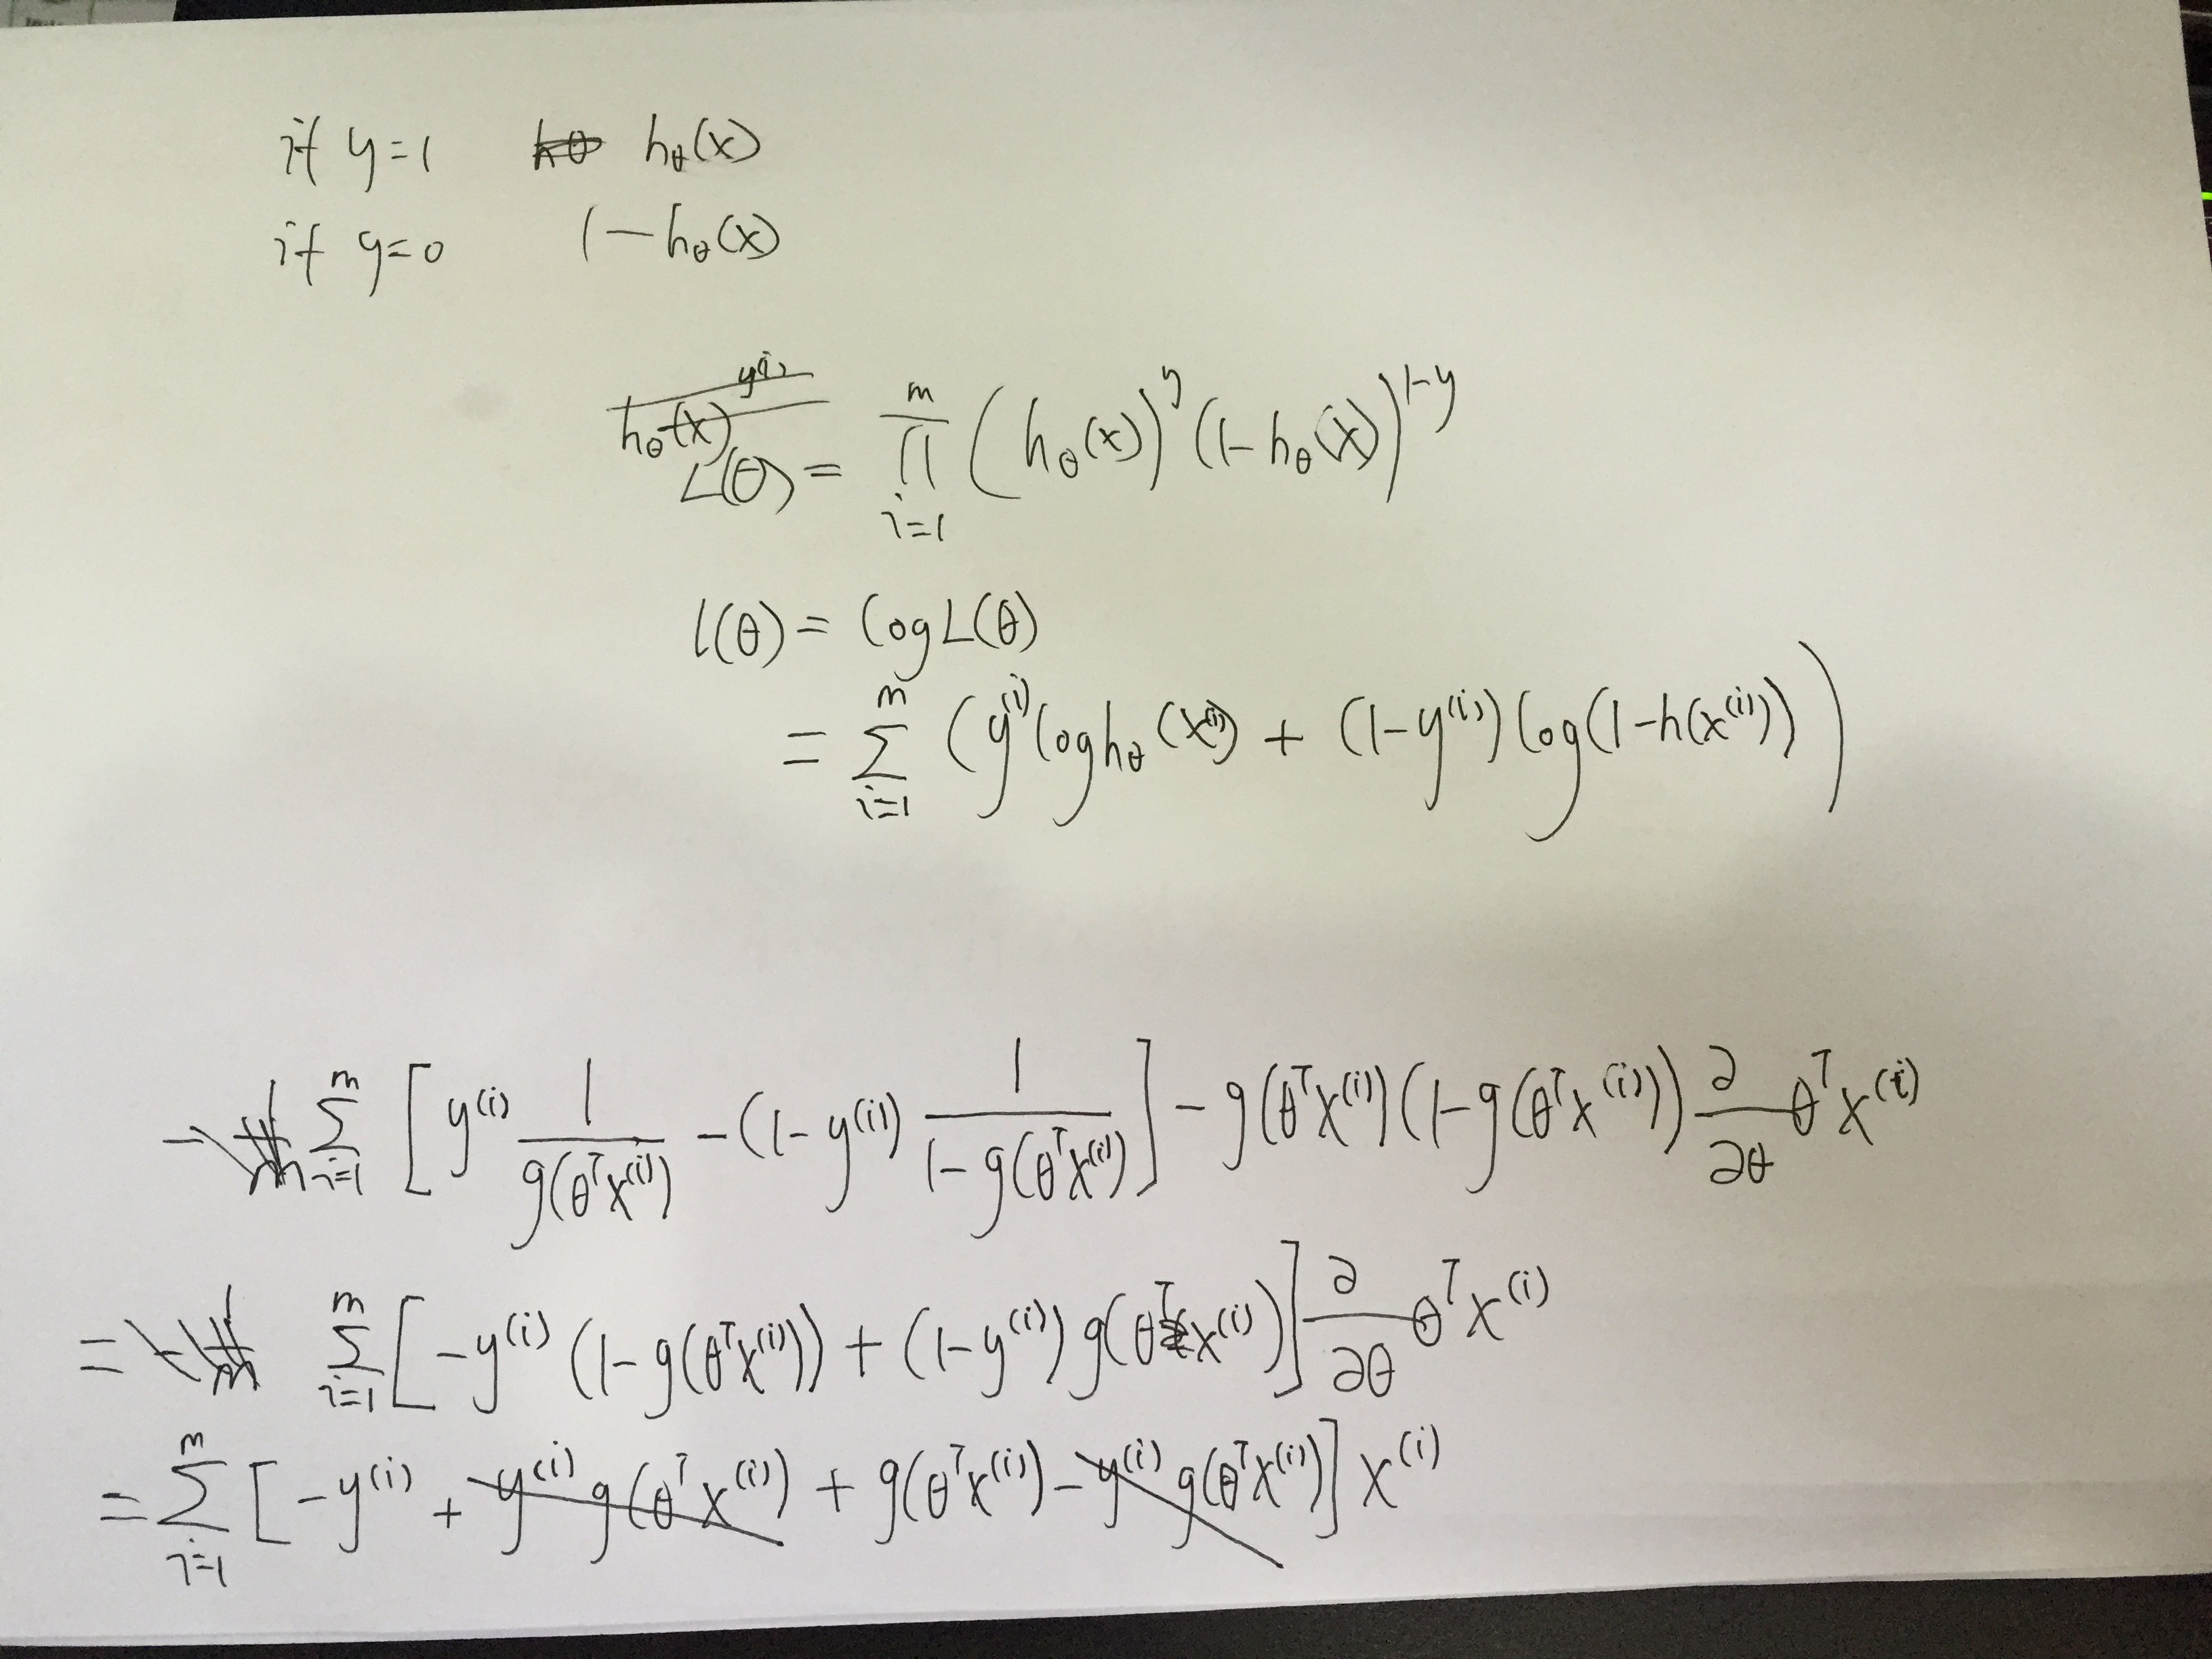 if y=1 hθ hθ(x)
if y=0 1-hθ(x)
hθ(x)^y(i)
L(θ) = ∏_{i=1}^{m} (hθ(x))^y (1-hθ(x))^{1-y}
l(θ) = log L(θ)
= Σ_{i=1}^{m} (y^(i) log hθ(x^(i)) + (1-y^(i)) log(1-h(x^(i))))
- 1/m Σ_{i=1}^{m} [y^(i) 1/g(θ^T x^(i)) - (1-y^(i)) 1/(1-g(θ^T x^(i)))] - g(θ^T x^(i))(1-g(θ^T x^(i))) ∂/∂θ θ^T x^(i)
= - 1/m Σ_{i=1}^{m} [-y^(i) (1-g(θ^T x^(i))) + (1-y^(i)) g(θ^T x^(i))] ∂/∂θ θ^T x^(i)
= Σ_{i=1}^{m} [-y^(i) + y^(i) g(θ^T x^(i)) + g(θ^T x^(i)) - y^(i) g(θ^T x^(i))] x^(i)